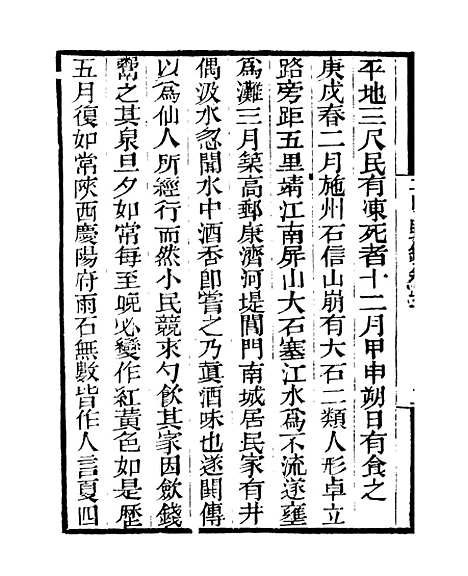 平地三尺民有凍死者十二月甲申朔日有食之
庚戌春二月施州石信山崩有大石二類人形卓立
路旁距五里靖江南屏山大石塞江水爲不流遂壅
爲灘三月築高郵康濟河堤閶門南城居民家有井
偶汲水忽聞水中酒香卽嘗之乃眞酒味也遂閧傳
以爲仙人所經行而然小民競求勺飲其家因斂錢
鬻之其泉旦夕如常每至晚必變作紅黃色如是歷
五月復如常陝西慶陽府雨石無數皆作人言夏四